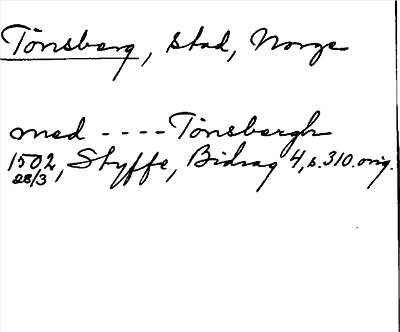 Tönsberg, stad, Norge
med ---- Tönsbergh
1502, Styffe, Bidrag 4, s. 310. orig.
28/3